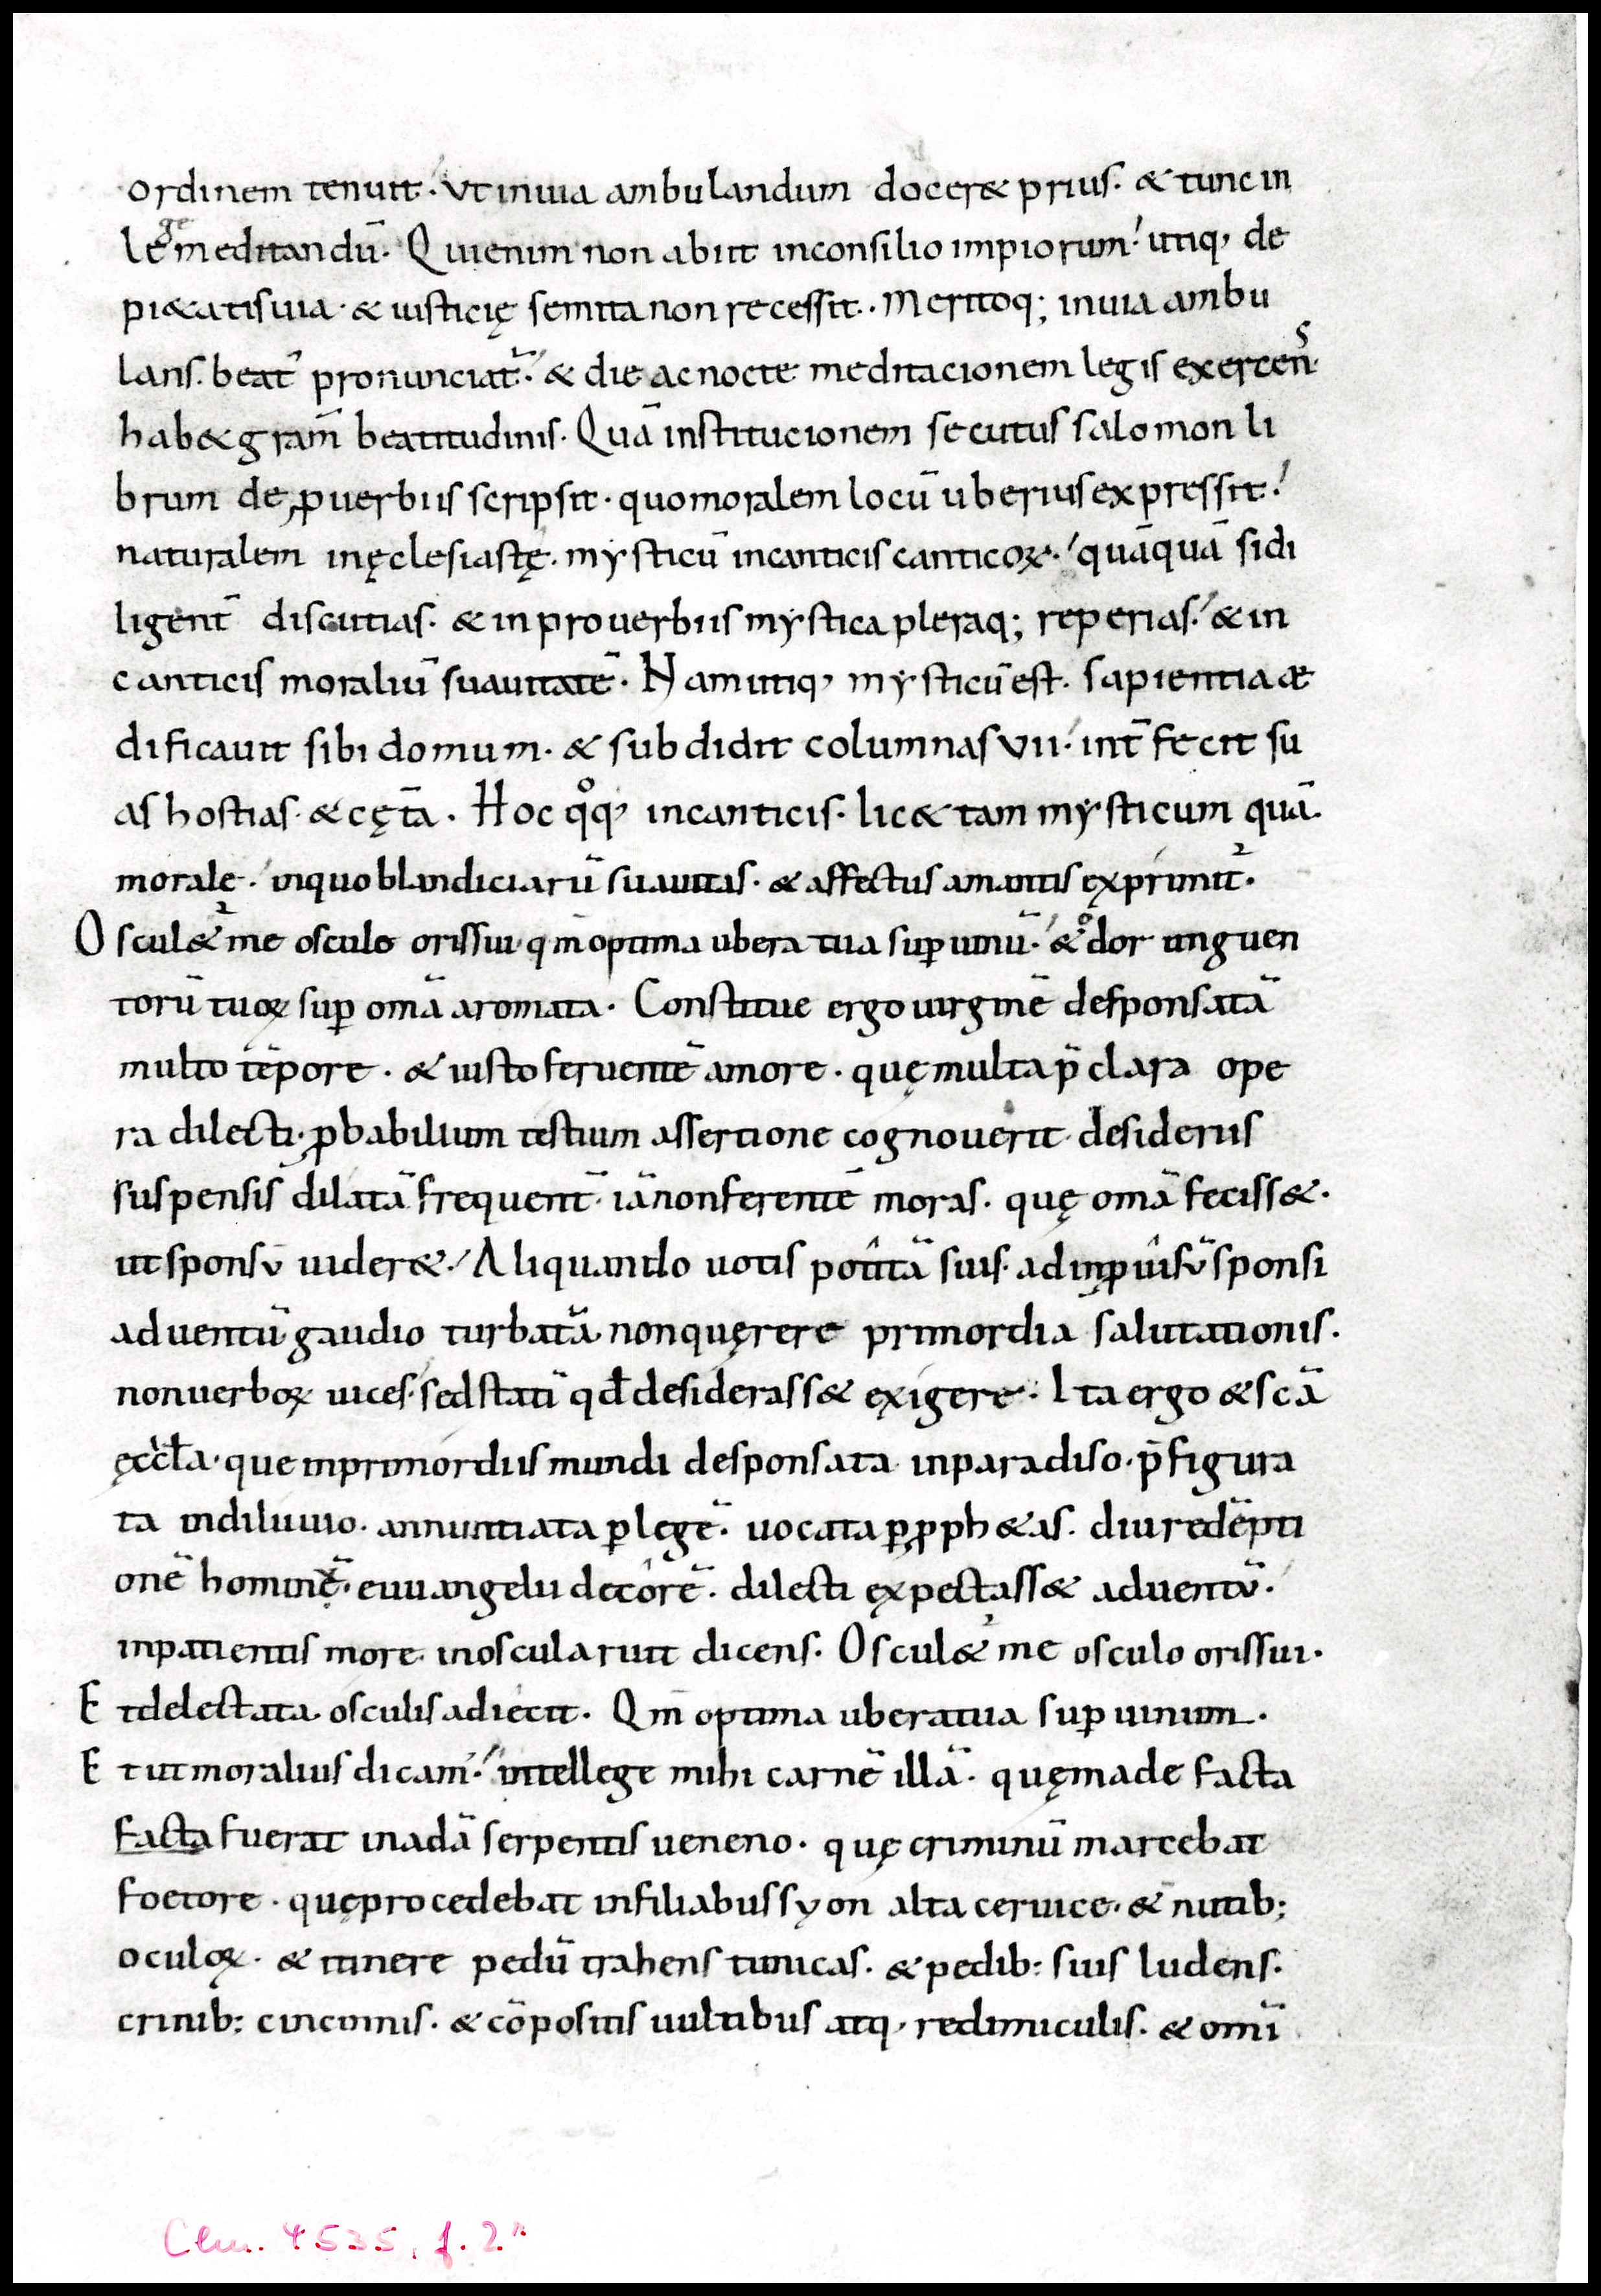 ordinem tenuit. Ut inuia ambulandum docer& prius. & tunc in
lege meditandū. Quienim non abiit inconsilio impiorum. utiq, de
pi&atisuia. & iusticię semita non recessit. Meritoq; inuia ambu
lans. beat' pronunciat̄. & die ac nocte meditacionem legis exercen̄s.
hab& gram̄ beatitudinis. Quā institucionem secutus salomon li
brum de ꝓuerbiis scripsit. quomoralem locū uberius expressit.
naturalem inęclesiastę. mysticū incanticis canticoꝝ. quāquā sidi
ligent̄ discutias. & inprouerbiis mystica pleraq; reperias. & in
canticis moraliū suauitatē. Nam utiq, mysticū est. sapientia æ
dificauit sibi domum. & subdidit columnas VII. int̄fecit su
as hostias. & cęt̄a. Hoc qͦq, incanticis. lic& tam mysticum quā
morale. inquo blandiciarū suauitas. & affectus amantis exprimit᷑.
Oscul&᷑ me osculo orissui. qm̄ optima ubera tua suꝑ uinū. & odor unguen
torū tuoꝝ suꝑ omā aromata. Constitue ergo uirginē desponsatā
multo tēpore. & iusto feruentē amore. quę multa p̄clara ope
ra dilecti. ꝓbabilium testium assertione cognouerit. desideriis
suspensis dilatā frequent̄. iā non ferentē moras. quę omā feciss&.
ut sponsū uider&. Aliquando uotis potitā suis. ad inꝓuisū sponsi
aduentū gaudio turbatā non quęrere primordia salutationis.
non uerboꝝ uices. sed statī qđ desiderass& exigere. Ita ergo & scā
ęccl̄a. que inprimordiis mundi desponsata inparadiso. p̄figura
ta indiluuio. annuntiata ꝑ legē. uocata ꝑ ꝓph&as. diu redēpti
onē hominē. euuangelii decorē. dilecti expectass& aduentū.
inpatientis more. inoscula ruit dicens. Oscul&᷑ me osculo orissui.
Et delectata osculis adiecit. Qm̄ optima ubera tua suꝑ uinum.
Et ut moralius dicam. intellege mihi carnē illā. quęmade facta
facta fuerat inadā serpentis ueneno. quę criminū marcebat
foetore. quę procedebat infiliabus syon alta ceruice. & nutib;
oculoꝝ. & itinere pedū trahens tunicas. & pedib; suis ludens.
crinib; cincinnis. & cōpositis uultibus atq, redimiculis. & omī
Clm. 4535, f. 2ʳ